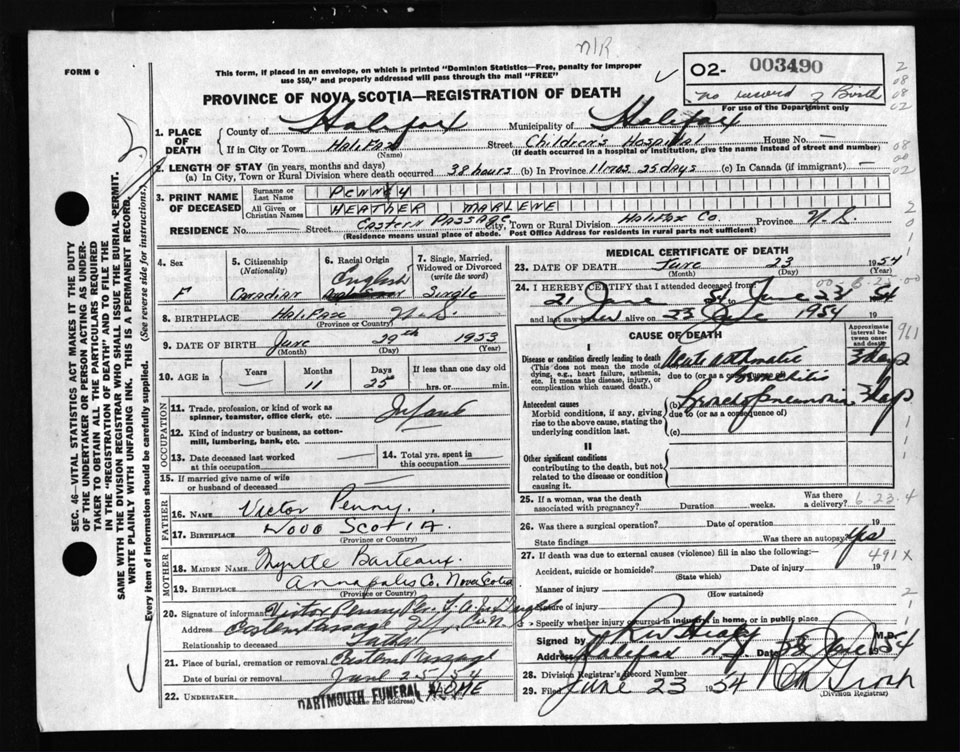 N/R
FORM 6
This form, if placed in an envelope, on which is printed "Dominion Statistics—Free, penalty for improper
use $50," and properly addressed will pass through the mail "FREE"
O2- 003490
no record of Birth
For use of the Department only
PROVINCE OF NOVA SCOTIA—REGISTRATION OF DEATH
1. PLACE OF DEATH
County of Halifax Municipality of Halifax
If in City or Town HALIFAX (Name) Street Children's Hospital House No. —
(If death occurred in a hospital or institution, give the name instead of street and number)
2. LENGTH OF STAY (in years, months and days)
(a) In City, Town or Rural Division where death occurred 38 hours (b) In Province 11 mos 25 days (c) In Canada (if immigrant) —
3. PRINT NAME OF DECEASED
Surname or Last Name PENNEY
All Given or Christian Names HEATHER MARLENE
RESIDENCE No. — Street Eastern Passage City, Town or Rural Division Halifax Co. Province N.S.
(Residence means usual place of abode. Post Office Address for residents in rural parts not sufficient)
4. Sex F
5. Citizenship (Nationality) Canadian
6. Racial Origin English
7. Single, Married, Widowed or Divorced (write the word) Single
8. BIRTHPLACE HALIFAX N.S.
(Province or Country)
9. DATE OF BIRTH June 29th 1953
(Month) (Day) (Year)
10. AGE in — Years 11 Months 25 Days If less than one day old
hrs. or min.
OCCUPATION
11. Trade, profession, or kind of work as
spinner, teamster, office clerk, etc. Infant
12. Kind of industry or business, as cotton-
mill, lumbering, bank, etc.
13. Date deceased last worked
at this occupation
14. Total yrs. spent in
this occupation
15. If married give name of wife
or husband of deceased
FATHER
16. NAME Victor Penny.
17. BIRTHPLACE NOVA SCOTIA.
(Province or Country)
MOTHER
18. MAIDEN NAME Myrtle Barteaux.
19. BIRTHPLACE Annapolis Co, Nova Scotia
(Province or Country)
20. Signature of informant Victor Penny Per.
Address Eastern Passage Hfx. Co. N.S.
Relationship to deceased Father
21. Place of burial, cremation or removal Eastern Passage
Date of burial or removal June 25 54
22. UNDERTAKER DARTMOUTH FUNERAL HOME
(Name and address)
MEDICAL CERTIFICATE OF DEATH
23. DATE OF DEATH June 23 1954
(Month) (Day) (Year)
24. I HEREBY CERTIFY that I attended deceased from
21 June 54 to June 23 54
and last saw her alive on 23 June 1954
CAUSE OF DEATH
Approximate interval between onset and death
I
Disease or condition directly leading to death
(This does not mean the mode of dying, e.g., heart failure, asthenia, etc. It means the disease, injury, or complication which caused death.)
Acute asthmatic 3 days
due to (or as a consequence of) Bronchitis
Antecedent causes
Morbid conditions, if any, giving rise to the above cause, stating the underlying condition last.
(b) Bronchopneumonia 3 days
due to (or as a consequence of)
(c)
II
Other significant conditions
contributing to the death, but not related to the disease or condition causing it.
25. If a woman, was the death
associated with pregnancy? Duration weeks. Was there a delivery? 6-23-4
26. Was there a surgical operation? Date of operation 19
State findings Was there an autopsy? Yes
27. If death was due to external causes (violence) fill in also the following:— 491X
Accident, suicide or homicide? Date of injury 19
(State which)
Manner of injury
(How sustained)
Nature of injury
Specify whether injury occurred in industry, in home, or in public place
Signed by M.D.
Address Halifax N.S. Date 23 June 1954
28. Division Registrar's Record Number
29. Filed JUNE 23 1954
(Division Registrar)
SEC. 46—VITAL STATISTICS ACT MAKES IT THE DUTY
OF THE UNDERTAKER OR PERSON ACTING AS UNDER-
TAKER TO OBTAIN ALL THE PARTICULARS REQUIRED
IN THE "REGISTRATION OF DEATH" AND TO FILE THE
SAME WITH THE DIVISION REGISTRAR WHO SHALL ISSUE THE BURIAL PERMIT.
WRITE PLAINLY WITH UNFADING INK. THIS IS A PERMANENT RECORD.
Every item of information should be carefully supplied. (See reverse side for instructions.)